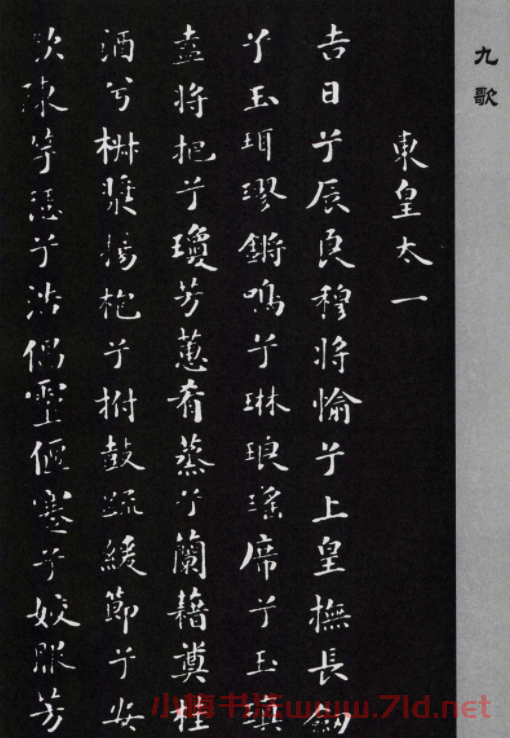 九歌
東皇太一
吉日兮辰良穆将愉兮上皇撫長劍
兮玉珥璆鏘鳴兮琳琅瑤席兮玉瑱
盍将把兮瓊芳蕙肴蒸兮蘭藉奠桂
酒兮椒漿揚枹兮拊鼓疏緩節兮安
歌陳竽瑟兮浩倡靈偃蹇兮姣服芳
小楷书法www.7ld.net